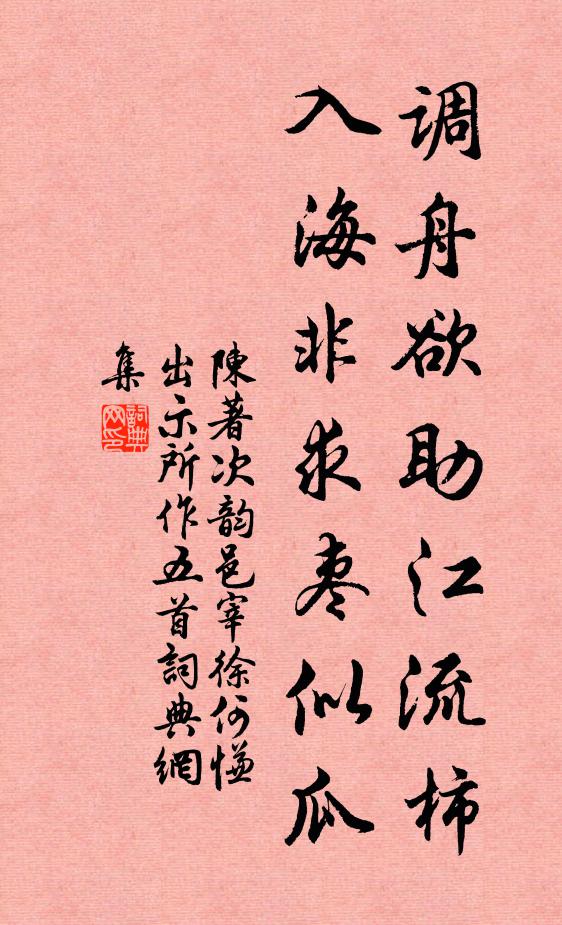 调舟欲助江流柿
入海非求枣似瓜
陳著次韵邑宰徐何慊
出示所作五首詞典網
集
詞典
网印